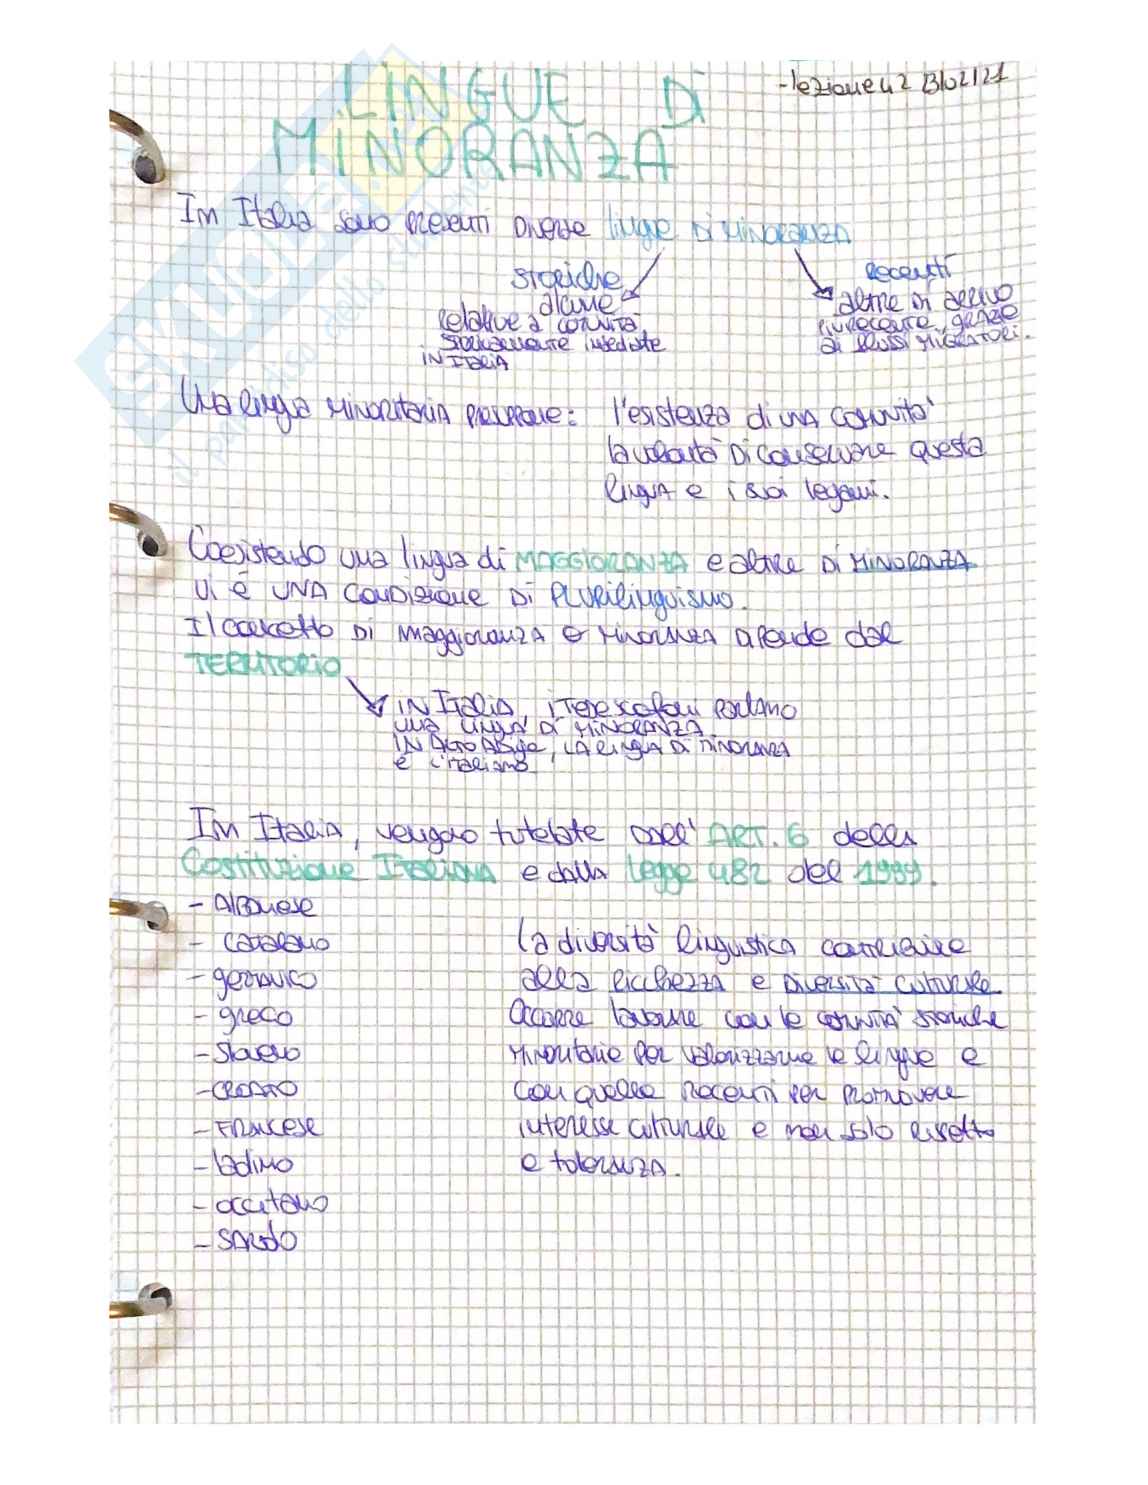 - lezione 4.2 23/02/21
LINGUE DI
MINORANZA
In Italia sono presenti diverse lingue di minoranza
storiche
alcune
relative a comunità
storicamente insediate
in Italia
recenti
altre di arrivo
più recente, grazie
ai flussi migratori.
Una lingua minoritaria presuppone: l'esistenza di una comunità
la volontà di conservare questa
lingua e i suoi legami.
Coesistendo una lingua di MAGGIORANZA e altre di MINORANZA
vi è una condizione di plurilinguismo.
Il concetto di maggioranza e minoranza dipende dal
TERRITORIO
in Italia, i tedescofoni parlano
una lingua di minoranza
in Alto Adige, la lingua di minoranza
è l'italiano
In Italia, vengono tutelate dall' ART. 6 della
Costituzione Italiana e dalla legge 482 del 1999.
- Albanese
- catalano
- germanico
- greco
- sloveno
- croato
- francese
- ladino
- occitano
- sardo
la diversità linguistica contribuire
alla ricchezza e diversità culturale
Occorre lavorare con le comunità storiche
minoritarie per valorizzarne le lingue e
con quelle recenti per promuovere
interesse culturale e non solo rispetto
e tolleranza.
SKUOLA
il paradiso dello studente